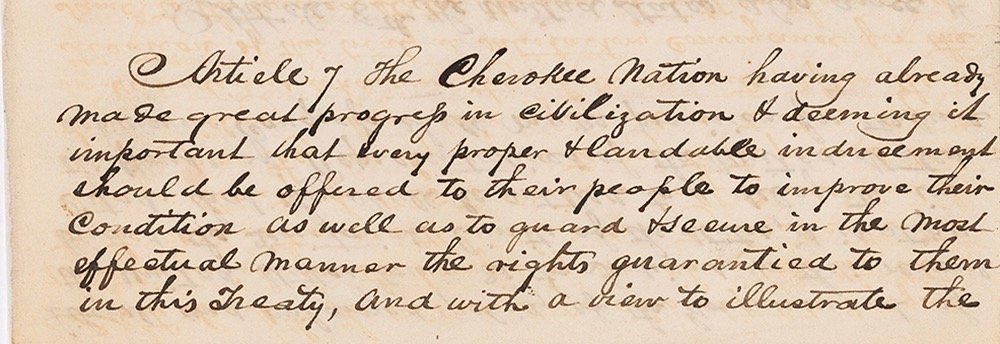 Article 7 The Cherokee Nation having already
made great progress in civilization & deeming it
important that every proper & laudable inducement
should be offered to their people to improve their
Condition as well as to guard & secure in the most
effectual manner the rights guarantied to them
in this Treaty, and with a view to illustrate the